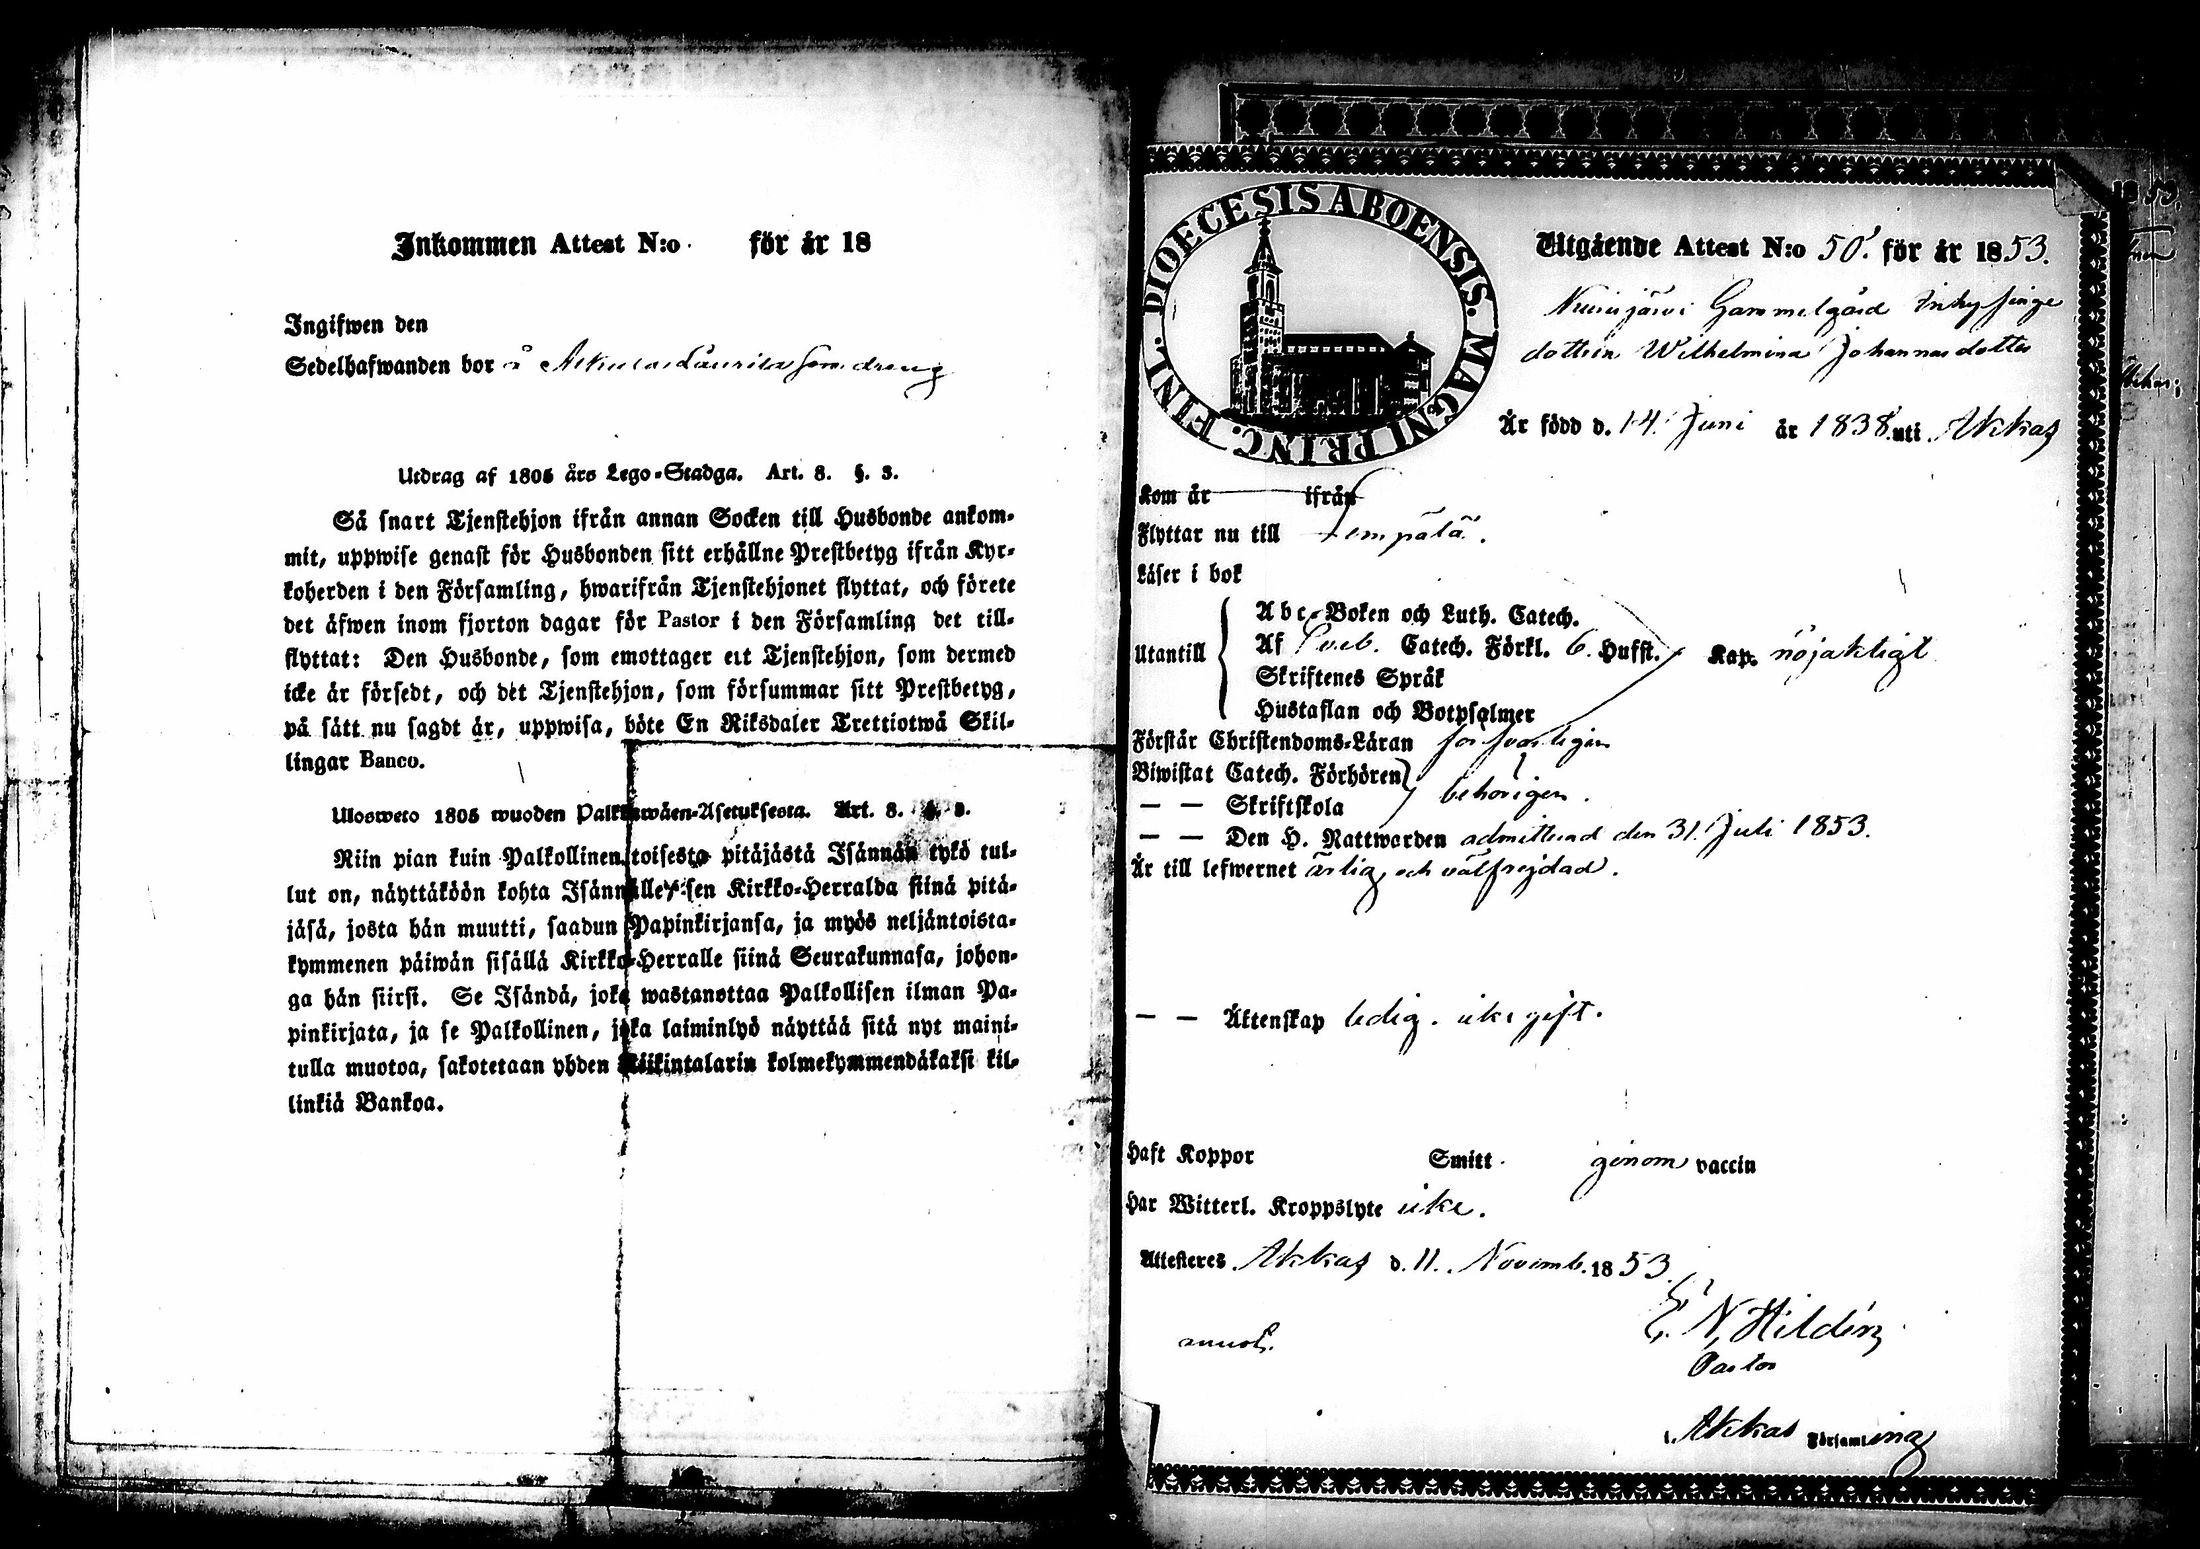 Inkommen Attest N:o för år 18
Ingifwen den
Sedelhafwanden bor å
Utdrag af 1805 års Lego-Stadga. Art. 8. §. 3.
Så snart Tjenstehjon ifrån annan Socken till Husbonde ankom-
mit, uppwise genast för Husbonden sitt erhållne Prestbetyg ifrån Kyr-
koherden i den Församling, hwarifrån Tjenstehjonet flyttat, och förete
det äfwen inom fjorton dagar för Pastor i den Församling det till-
flyttat: Den Husbonde, som emottager ett Tjenstehjon, som dermed
icke är försedt, och det Tjenstehjon, som försummar sitt Prestbetyg,
på sätt nu sagdt är, uppwisa, böte En Riksdaler Trettiotwå Skil-
lingar Banco.
Ulosweto 1805 wuoden Palkkawäen-Asetuksesta. Art. 8. §. 3.
Niin pian kuin Palkollinen toisesta pitäjästä Isännän tykö tul-
lut on, näyttäköön kohta Isännälle sen Kirkko-Herralda siinä pitä-
jäsä, josta hän muutti, saadun Papinkirjansa, ja myös neljäntoista-
kymmenen päiwän sisällä Kirkko-Herralle siinä Seurakunnasa, johon-
ga hän siirsi. Se Isändä, joka wastanottaa Palkollisen ilman Pa-
pinkirjata, ja se Palkollinen, joka laiminlyö näyttää sitä nyt maini-
tulla muotoa, sakotetaan yhden Riikintalarin kolmekymmendäkaksi kil-
linkiä Bankoa.
DIOECESIS ABOENSIS. MAGNI PRINC. FINL.
Utgående Attest N:o 50. för år 1853.
Nuinjärvi Gammelgård Inhysinge
dottren Wilhelmina Johannasdotter
Är född d. 14 Juni år 1838 uti Akkas
Kom år ifrån
Flyttar nu till Lempälä.
Läser i bok
Utantill
Abc-Boken och Luth. Catech.
Af Sveb. Catech. Förkl. 6. Hufst. Kap. nöjaktigt
Skriftenes Språk
Hustaflan och Botpsalmer
Förstår Christendoms-Läran försvarligen
Biwistat Catech. Förhören
— — Skriftskola behörigen.
— — Den H. Nattwarden admitterad den 31. Juli 1853.
Är till lefwernet ärlig och välfrejdad.
— — Äktenskap ledig. icke gift.
Haft Koppor Smitt genom vaccin
Har Witterl. Kroppslyte icke.
Attesteres Akkas d. 11. Novemb. 1853.
E. N. Hildén
Pastor
annot.
i Akkas Församling